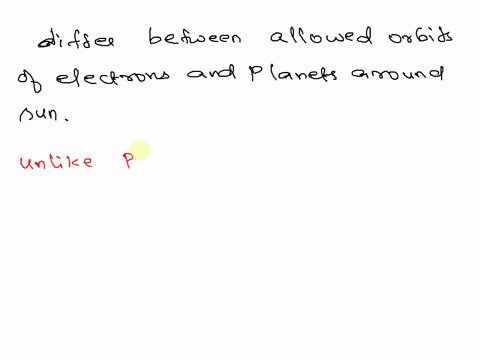 differ between allowed orbits
of electrons and Planets around
sun.
unlike P